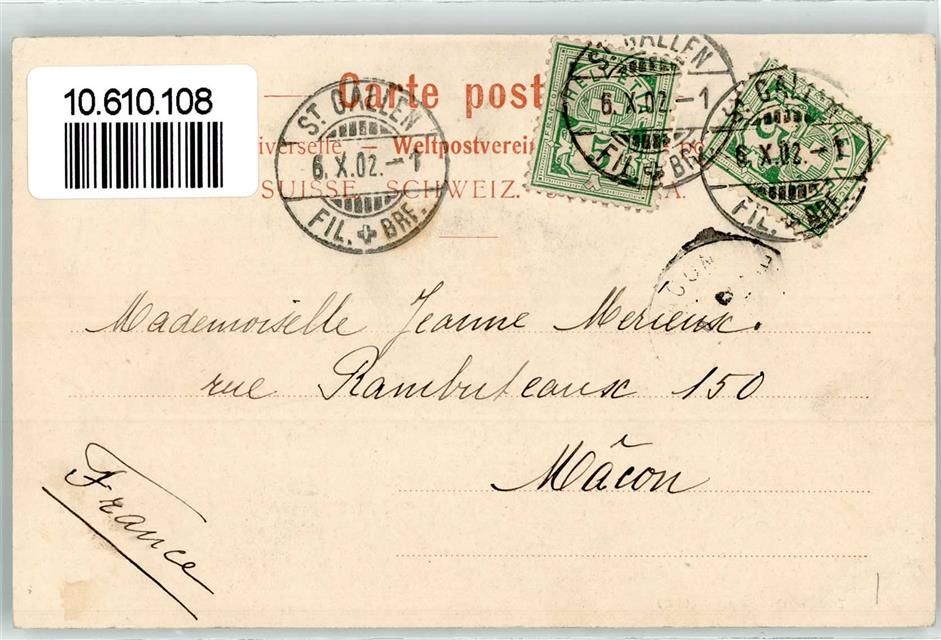 10.610.108
Carte post
iverselle. — Weltpostverei
SUISSE. SCHWEIZ. A.
ST. GALLEN
6.X.02.–1
FIL. BRF.
ST. GALLEN
6.X.02.–1
FIL. BRF.
5
GALLEN
6.X.02.–1
FIL. BRF.
5
Mademoiselle Jeanne Merieux.
rue Rambuteaux 150
Mâcon
France